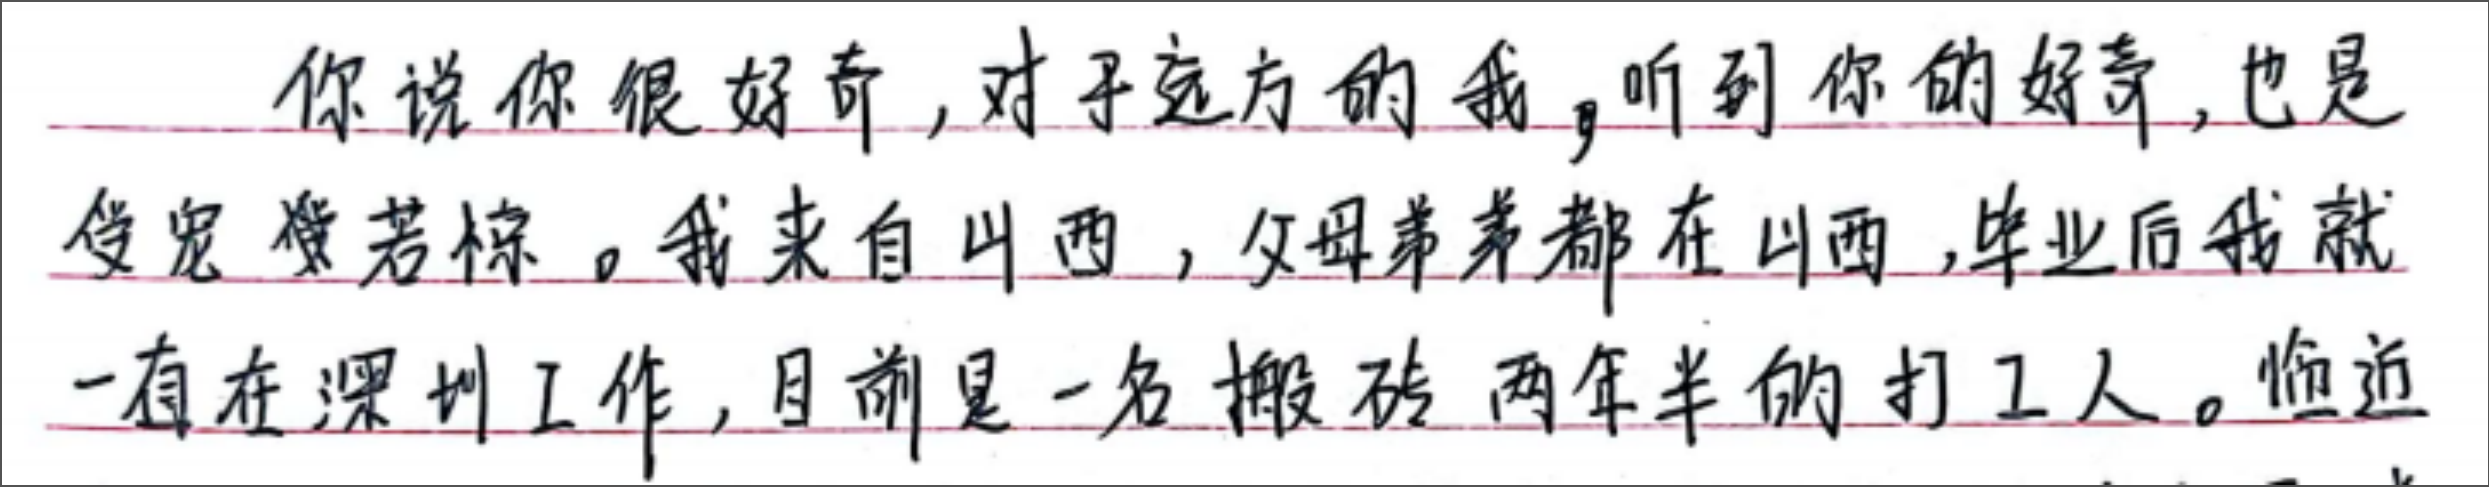 你说你很好奇,对于远方的我,听到你的好奇,也是
受宠若惊。我来自山西,父母弟弟都在山西,毕业后我就
一直在深圳工作,目前是一名搬砖两年半的打工人。恰近